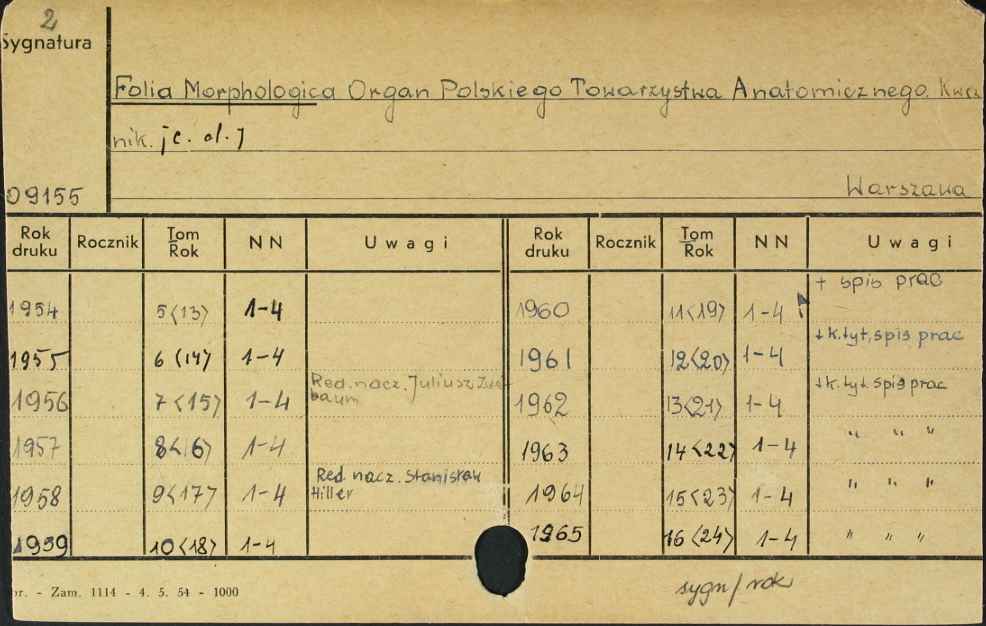 2
Sygnatura
Folia Morphologica Organ Polskiego Towarzystwa Anatomicznego. Kwa
nik. [c. d.]
09155
Warszawa
Rok druku Rocznik Tom Rok NN Uwagi Rok druku Rocznik Tom Rok NN Uwagi
1954 5<13> 1-4 1960 11<19> 1-4 + spis prac
1955 6<14> 1-4 1961 12<20> 1-4 +k.tyt, spis prac
1956 7<15> 1-4 Red. nacz. Juliusz Zwei
baum 1962 13<21> 1-4 +k.tyt. spis prac
1957 8<16> 1-4 1963 14<22> 1-4 " " "
1958 9<17> 1-4 Red. nacz. Stanisław
Hiller 1964 15<23> 1-4 " " "
1959 10<18> 1-4 1965 16<24> 1-4 " " "
sygn/rok
br. - Zam. 1114 - 4. 5. 54 - 1000